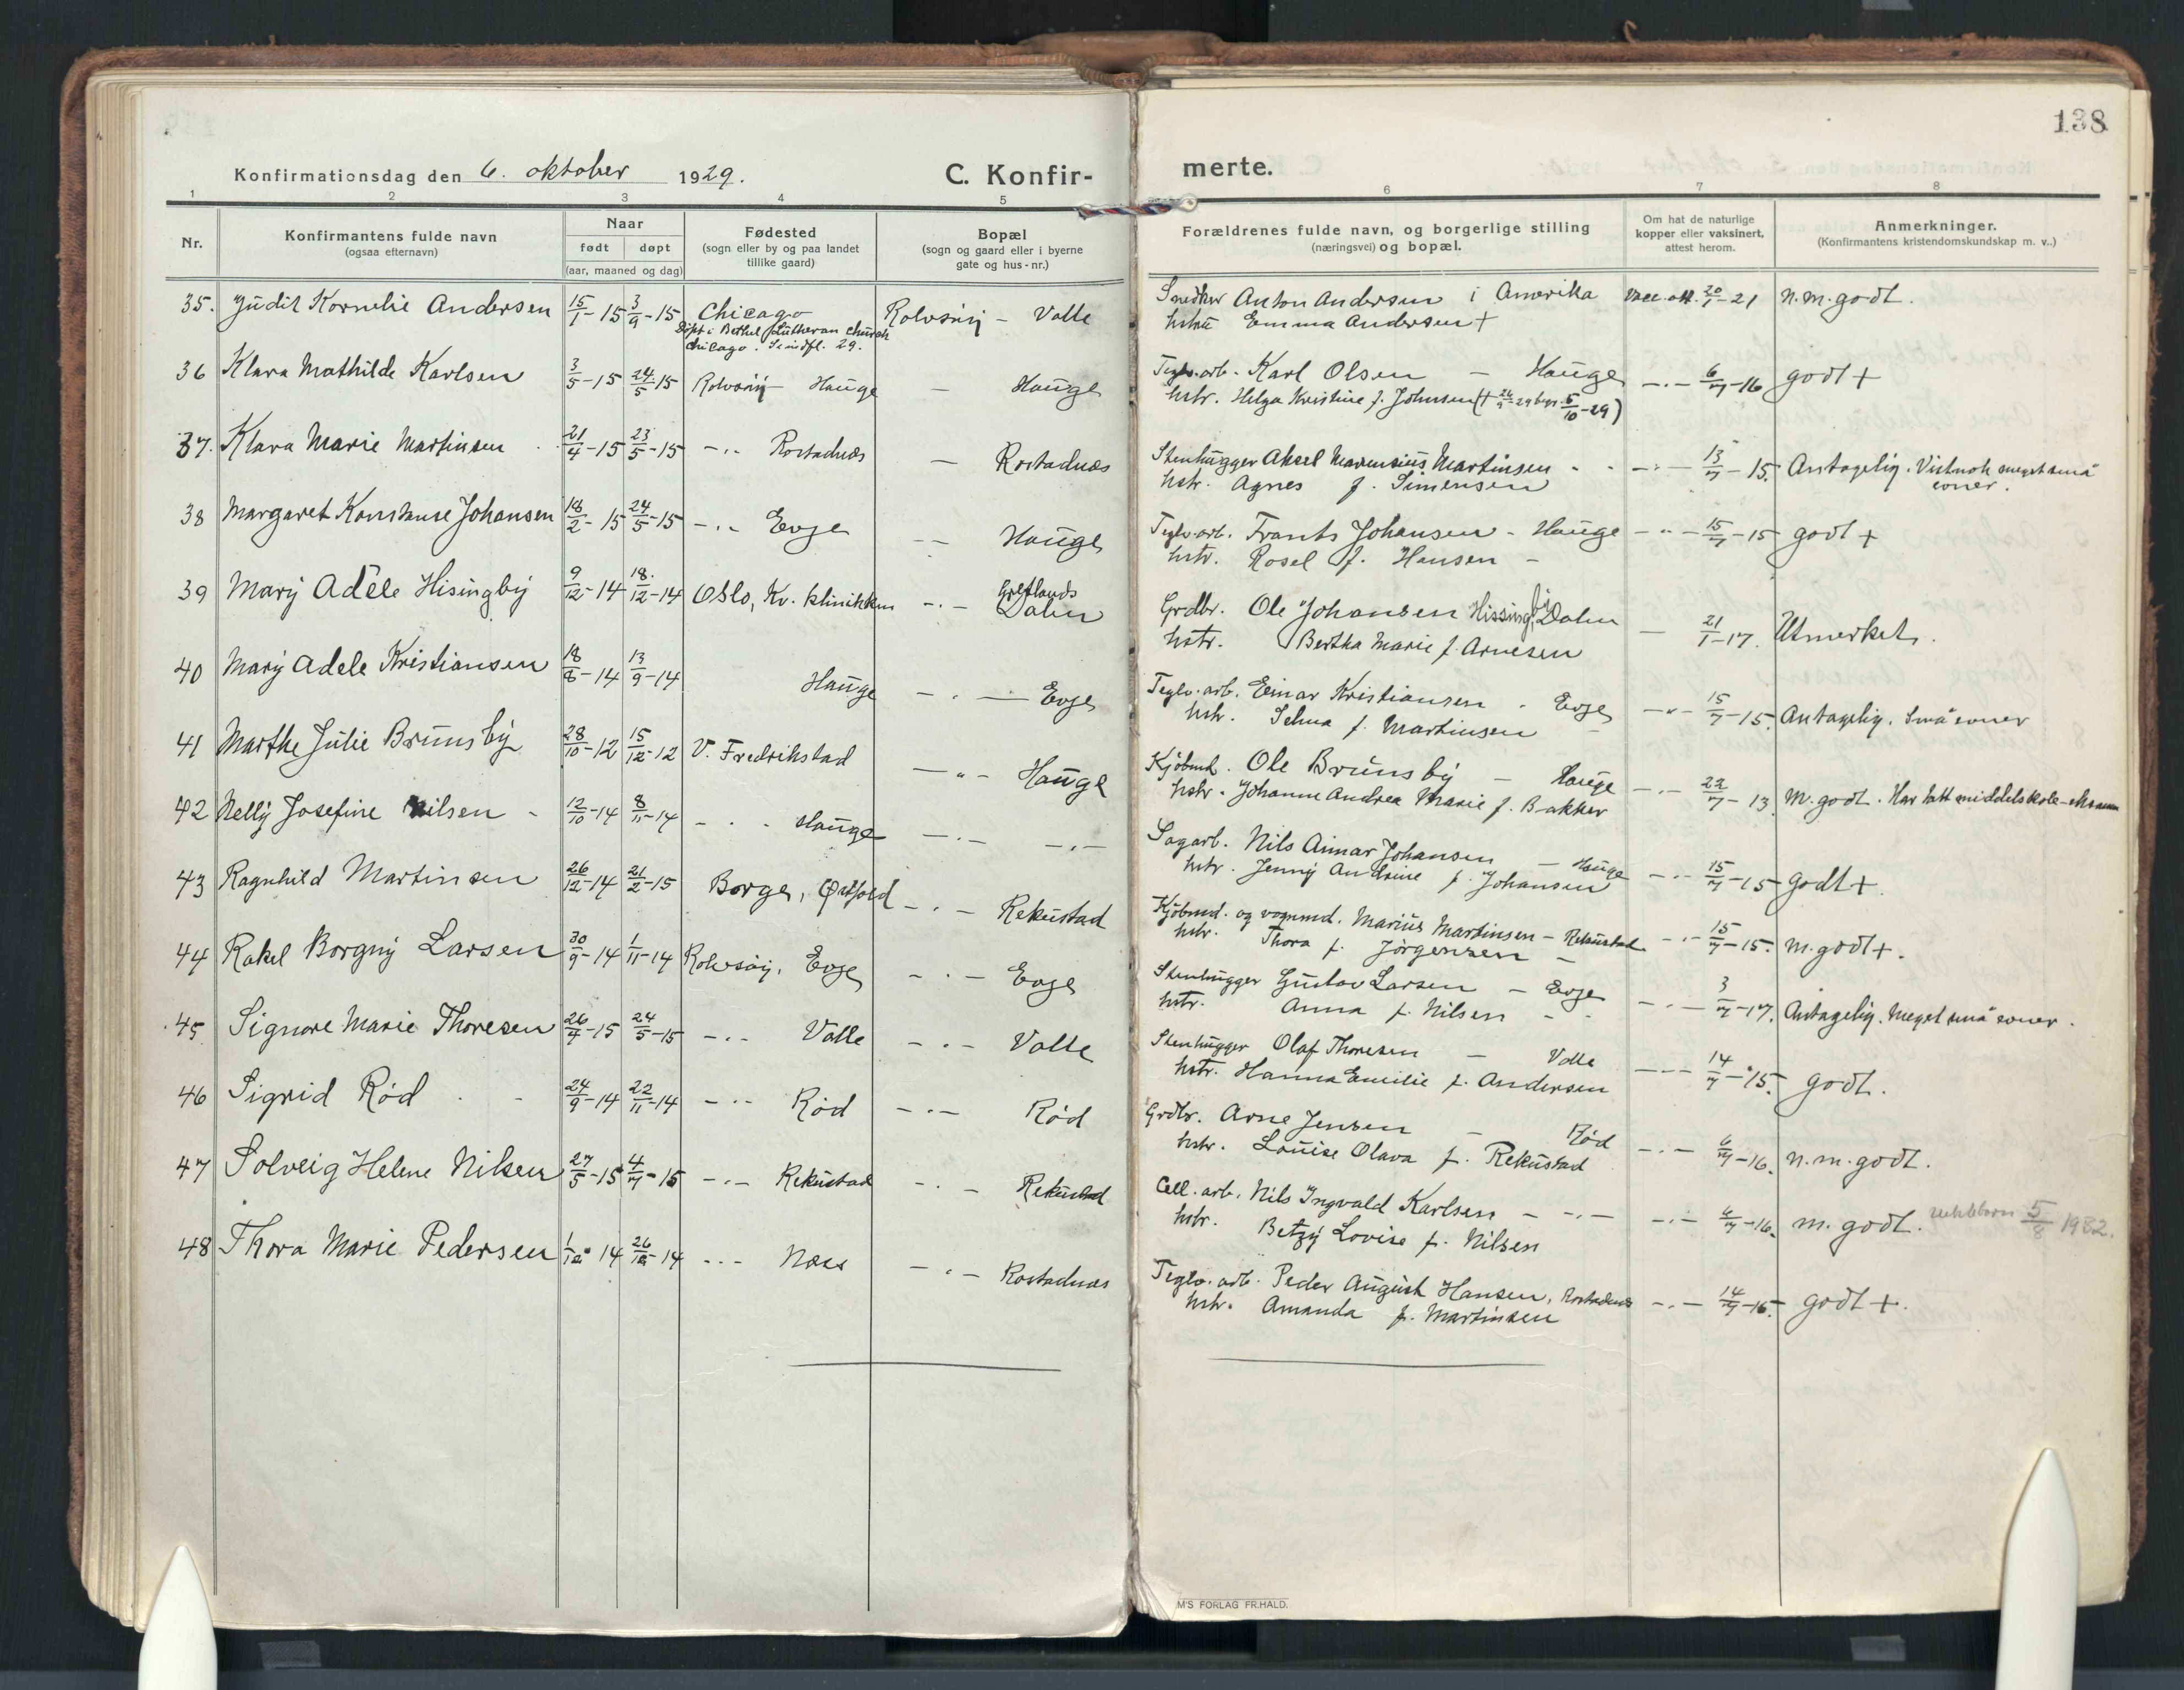 138
Konfirmationsdag den 6. oktober 1929.
C. Konfir-
merte.
1 2 3 4 5 6 7 8
Nr.
Konfirmantens fulde navn
(ogsaa efternavn)
Naar
født døpt
(aar, maaned og dag)
Fødested
(sogn eller by og paa landet
tillike gaard)
Bopæl
(sogn og gaard eller i byerne
gate og hus-nr.)
Forældrenes fulde navn, og borgerlige stilling
(næringsvei) og bopæl.
Om hat de naturlige
kopper eller vaksinert,
attest herom.
Anmerkninger.
(Konfirmantens kristendomskundskap m. v..)
35. Judit Kornelie Andersen 15/1-15 3/9-15 Chicago Rolvsøy - Valle Snedker Anton Andersen i Amerika Vacc. att. 20/1-21 n.m.godt.
Døpt i Bethel Lutheran Church
Chicago. 29.
hstru Emma Andersen +
36 Klara Mathilde Karlsen 3/5-15 24/5-15 Rolvsøy - Hauge — Hauge Teglv.arb. Karl Olsen — Hauge -.- 6/7-16 godt +
hstr. Helga Kristine f. Johnsen (+ 26/9-29 begr. 5/10-29)
37. Klara Marie Martinsen 21/4-15 23/5-15 -.- Rostadnæs — Rostadnæs Stenhugger Aksel Marensius Martinsen - - -.- 13/7-15. Antagelig. Vistnok meget små
evner.
hstr. Agnes f. Simensen
38 Margaret Konstanse Johansen 18/2-15 24/5-15 -.- Evje -- Hauge Teglv.arb. Frants Johansen - Hauge -"- 15/7-15 godt +
hstr. Rosel f. Hansen -
39 Mary Adèle Hisingby 9/12-14 18./12-14 Oslo, Kv. klinikken -.- Greflands
Dalen Grdbr. Ole Johansen Hissingby, Dalen — 21/1-17. Utmerket.
hstr. Bertha Marie f. Arnesen
40 Mary Adele Kristiansen 18/8-14 13/9-14 Hauge -.- Evje Teglv.arb. Einar Kristiansen - Evje -"- 15/7-15. Antagelig. Små evner
hstr. Selma f. Martinsen -
41 Marthe Julie Brunsby 28/10-12 15/12-12 V. Fredrikstad -"- Hauge Kjøbmd. Ole Brunsby — Hauge -.- 22/7-13. M.godt. Har tatt middelskole-eksamen
hstr. Johanne Andrea Marie f. Bakker
42 Nelly Josefine Nilsen - 12/10-14 8/11-14 - . - Hauge -.- -.- Sagarb. Nils Aimar Johansen — Hauge -.- 15/7-15 godt +.
hstr. Jenny Andrine f. Johansen
43 Ragnhild Martinsen 26/12-14 21/2-15 Borge, Østfold -.- Rekustad Kjøbmd. og vognmd. Marius Martinsen — Rekustad -.- 15/7-15. m.godt +.
hstr. Thora f. Jørgensen -
44 Rakel Borgny Larsen 30/9-14 1/11-14 Rolvsøy, Evje -.- Evje Stenhugger Gustav Larsen — Evje -.- 3/7-17. Antagelig. Meget små evner.
hstr. Anna f. Nilsen - -
45. Signore Marie Thoresen 26/4-15 24/5-15 -.- Valle -.- Valle Stenhugger Olaf Thoresen — Valle --- 14/7-15. godt.
hstr. Hanna Emilie f. Andersen
46 Sigrid Rød - - 24/9-14 22/11-14 -.- Rød -.- Rød Grdbr. Arne Jensen — Rød -.- 6/7-16. n.m.godt.
hstr. Louise Olava f. Rekustad
47 Solveig Helene Nilsen 27/5-15 4/7-15 -.- Rekustad -.- Rekustad Cell.arb. Nils Ingvald Karlsen - -.- -.- 6/7-16. m.godt. 5/8 1982.
hstr. Betzy Lovise f. Nilsen
48 Thora Marie Pedersen 1/12-14 26/12-14 -.- Næss -.- Rostadnæs Teglv.arb. Peder August Hansen, Rostadnæs -.- 14/7-15. godt +.
hstr. Amanda f. Martinsen
M'S FORLAG FR.HALD.